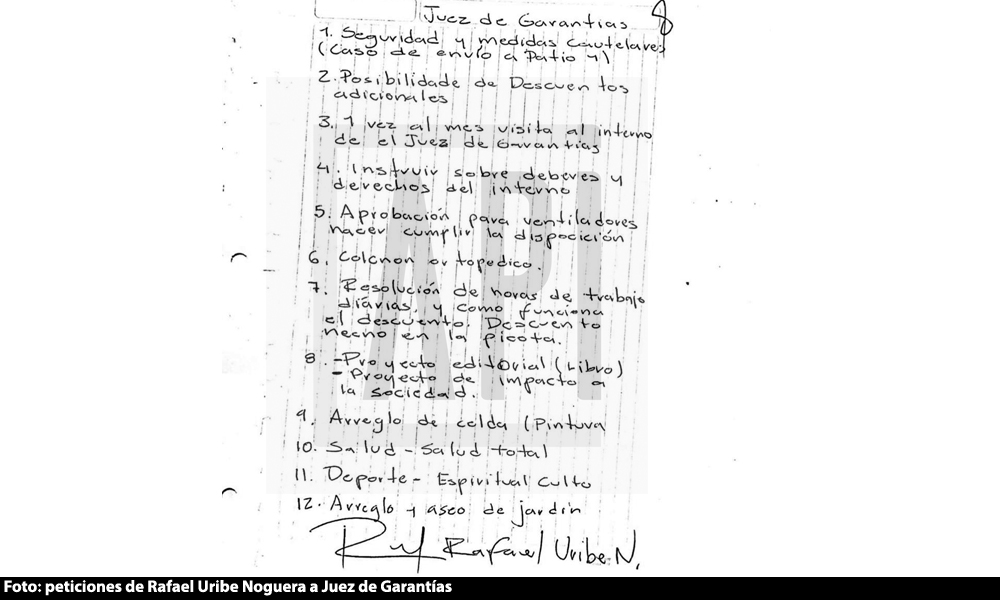 Juez de Garantías 8
1. Seguridad y medidas cautelares
(Caso de envío a Patio 4)
2. Posibilidade de Descuentos
adicionales
3. 1 vez al mes visita al interno
de el Juez de Garantías
4. Instruir sobre deberes y
derechos del interno
5. Aprobación para ventiladores
hacer cumplir la disposición
6. Colchon ortopedico.
7. Resolución de horas de trabajo
diárias, y como funciona
el descuento. Descuento
hecho en la picota.
8. - Proyecto editorial (Libro)
- Proyecto de impacto a
la sociedad.
9. Arreglo de celda (Pintura
10. Salud - Salud total
11. Deporte - Espiritual culto
12. Arreglo y aseo de jardín
Rafael Uribe N.
API
Foto: peticiones de Rafael Uribe Noguera a Juez de Garantías